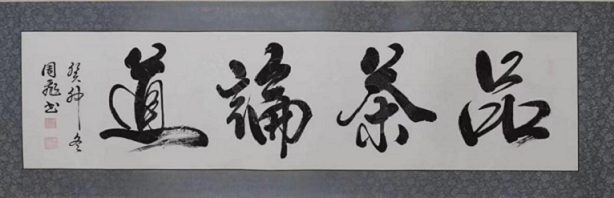 品茶論道
癸卯冬
周飛书